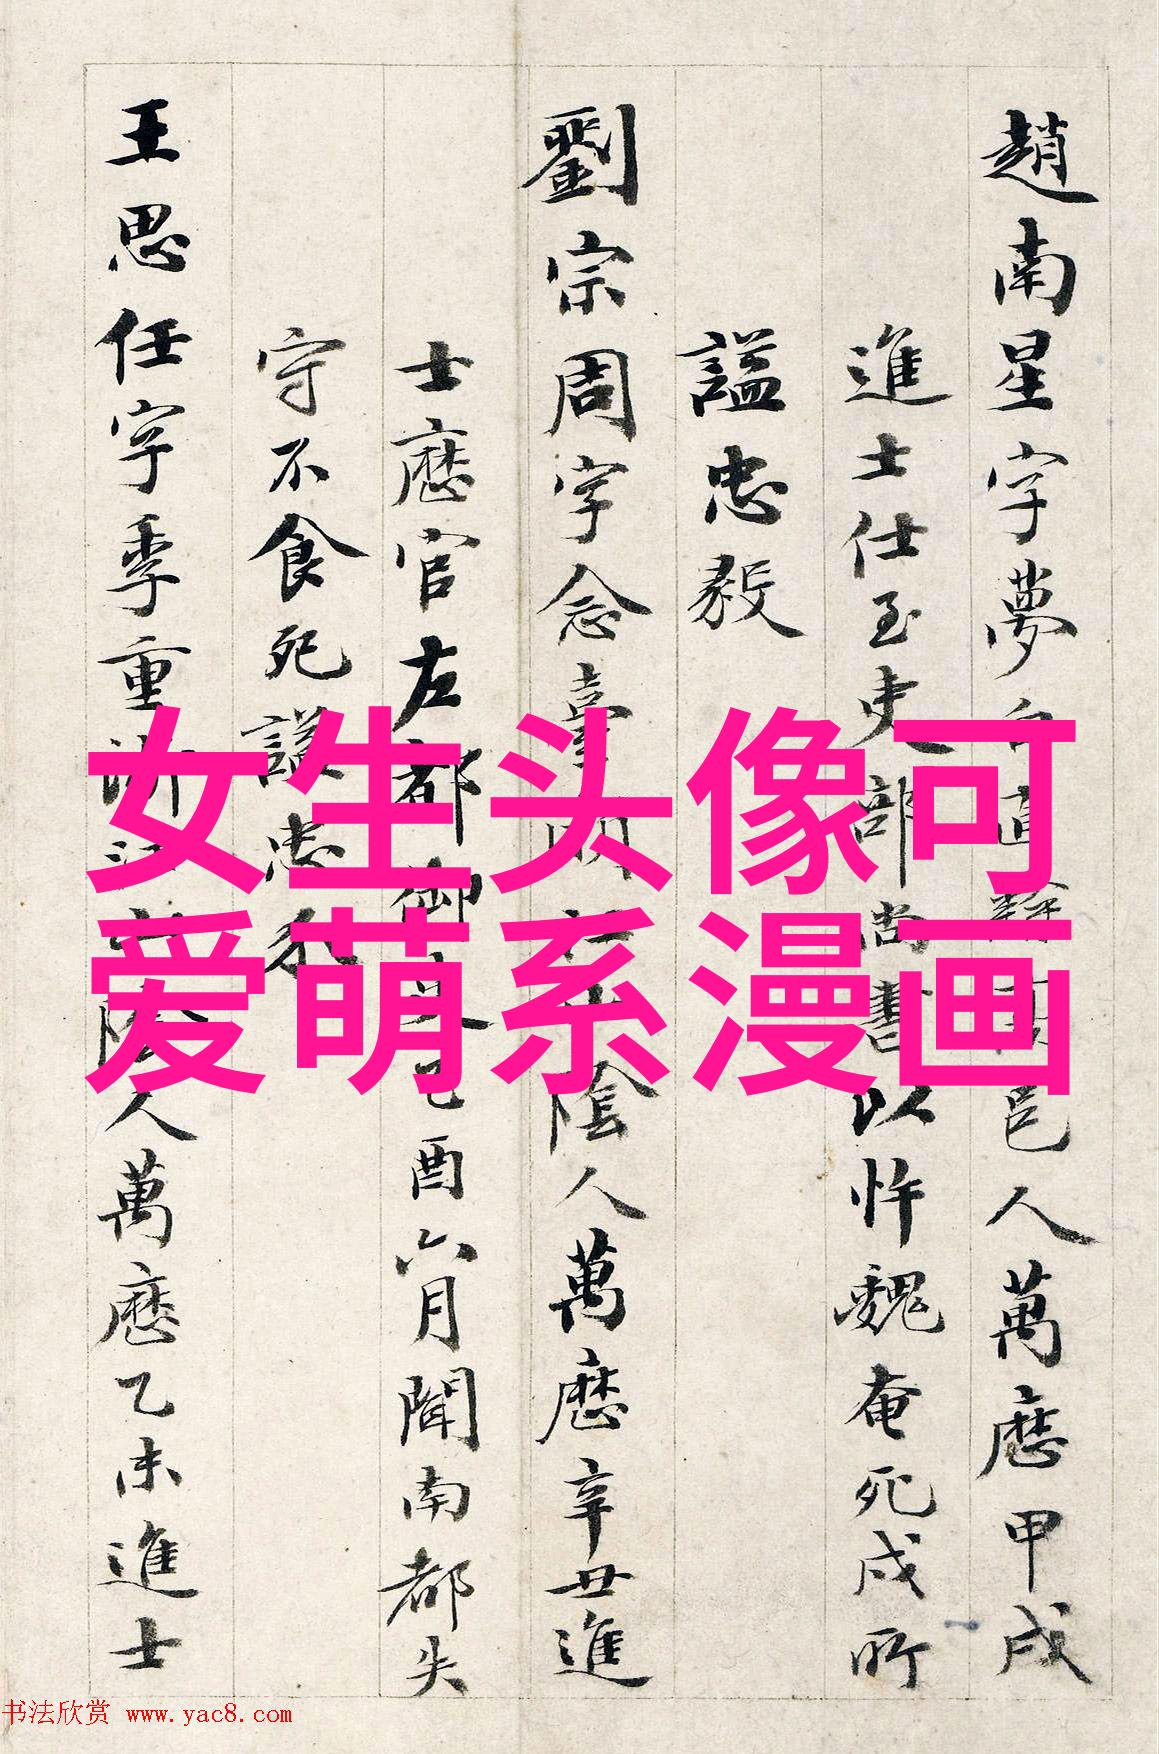 趙南星字夢白直隸高邑人萬曆甲戌
進士仕至吏部尚書以忤魏奄死戍所
謚忠毅
劉宗周字念臺明山陰人萬歷辛丑進
士歷官左都御史乙酉六月聞南都失
守不食死謚忠
王思任字季重浙江山陰人萬歷乙未進士
女生头像可
爱萌系漫画
书法欣赏 www.yac8.com